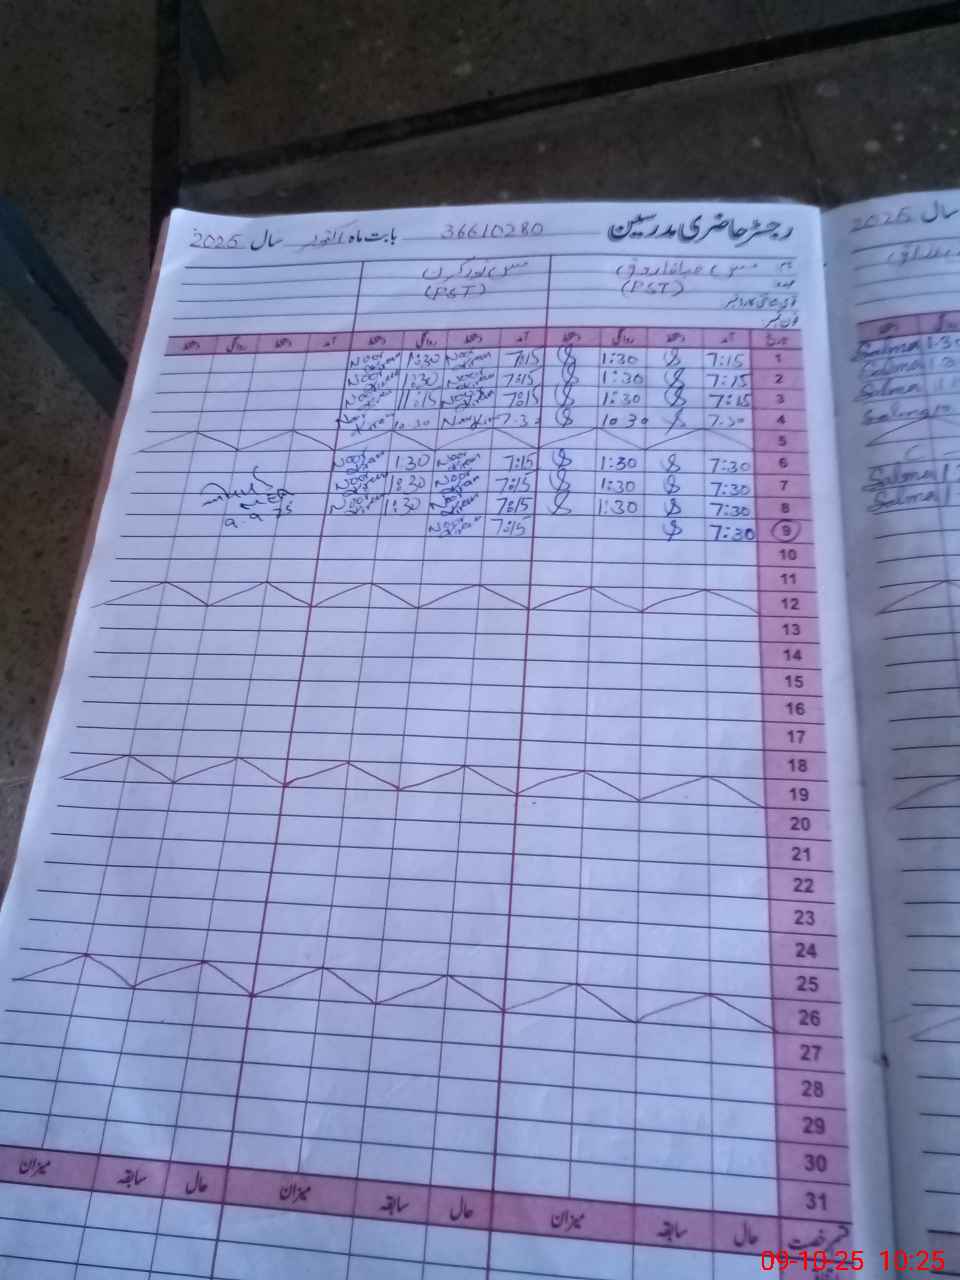 رجسٹر حاضری مدرسین 36610280 بابت ماہ اکتوبر سال 2025
سال 2025
نام مس
عہدہ (PST) (PST)
فون نمبر
تاریخ آمد دستخط روانگی دستخط آمد دستخط روانگی دستخط آمد دستخط روانگی دستخط
1 7:15 1:30 7:15 Noor Kiran 1:30 Noor Kiran Salma 1:30
2 7:15 1:30 7:15 Noor Kiran 1:30 Noor Kiran Salma
3 7:15 1:30 7:15 Noor Kiran 11:15 Noor Kiran Salma
4 7:30 10:30 7:30 Noor Kiran 10:30 Noor Kiran Salma
5
6 7:30 1:30 7:15 Noor Kiran 1:30 Noor Kiran Salma
7 7:30 1:30 7:15 Noor Kiran 1:30 Noor Kiran Salma
8 7:30 1:30 7:15 Noor Kiran 1:30 Noor Kiran
9 7:30 7:15 Noor Kiran
10
11
12
13
14
15
16
17
18
19
20
21
22
23
24
25
26
27
28
29
30
31
قسم رخصت حال سابقہ میزان حال سابقہ میزان حال سابقہ میزان
09-10-25 10:25